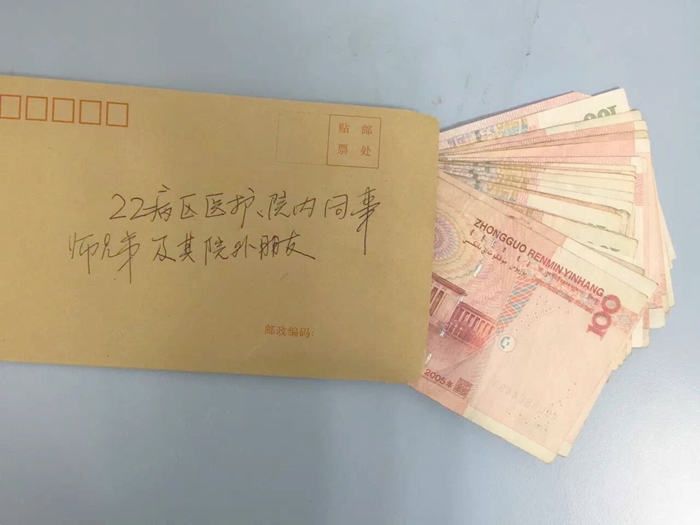 贴 邮
票 处
22病区医护、院内同事
师兄弟及其院外朋友
邮政编码:
ZHONGGUO RENMIN YINHANG
100
2005年
100